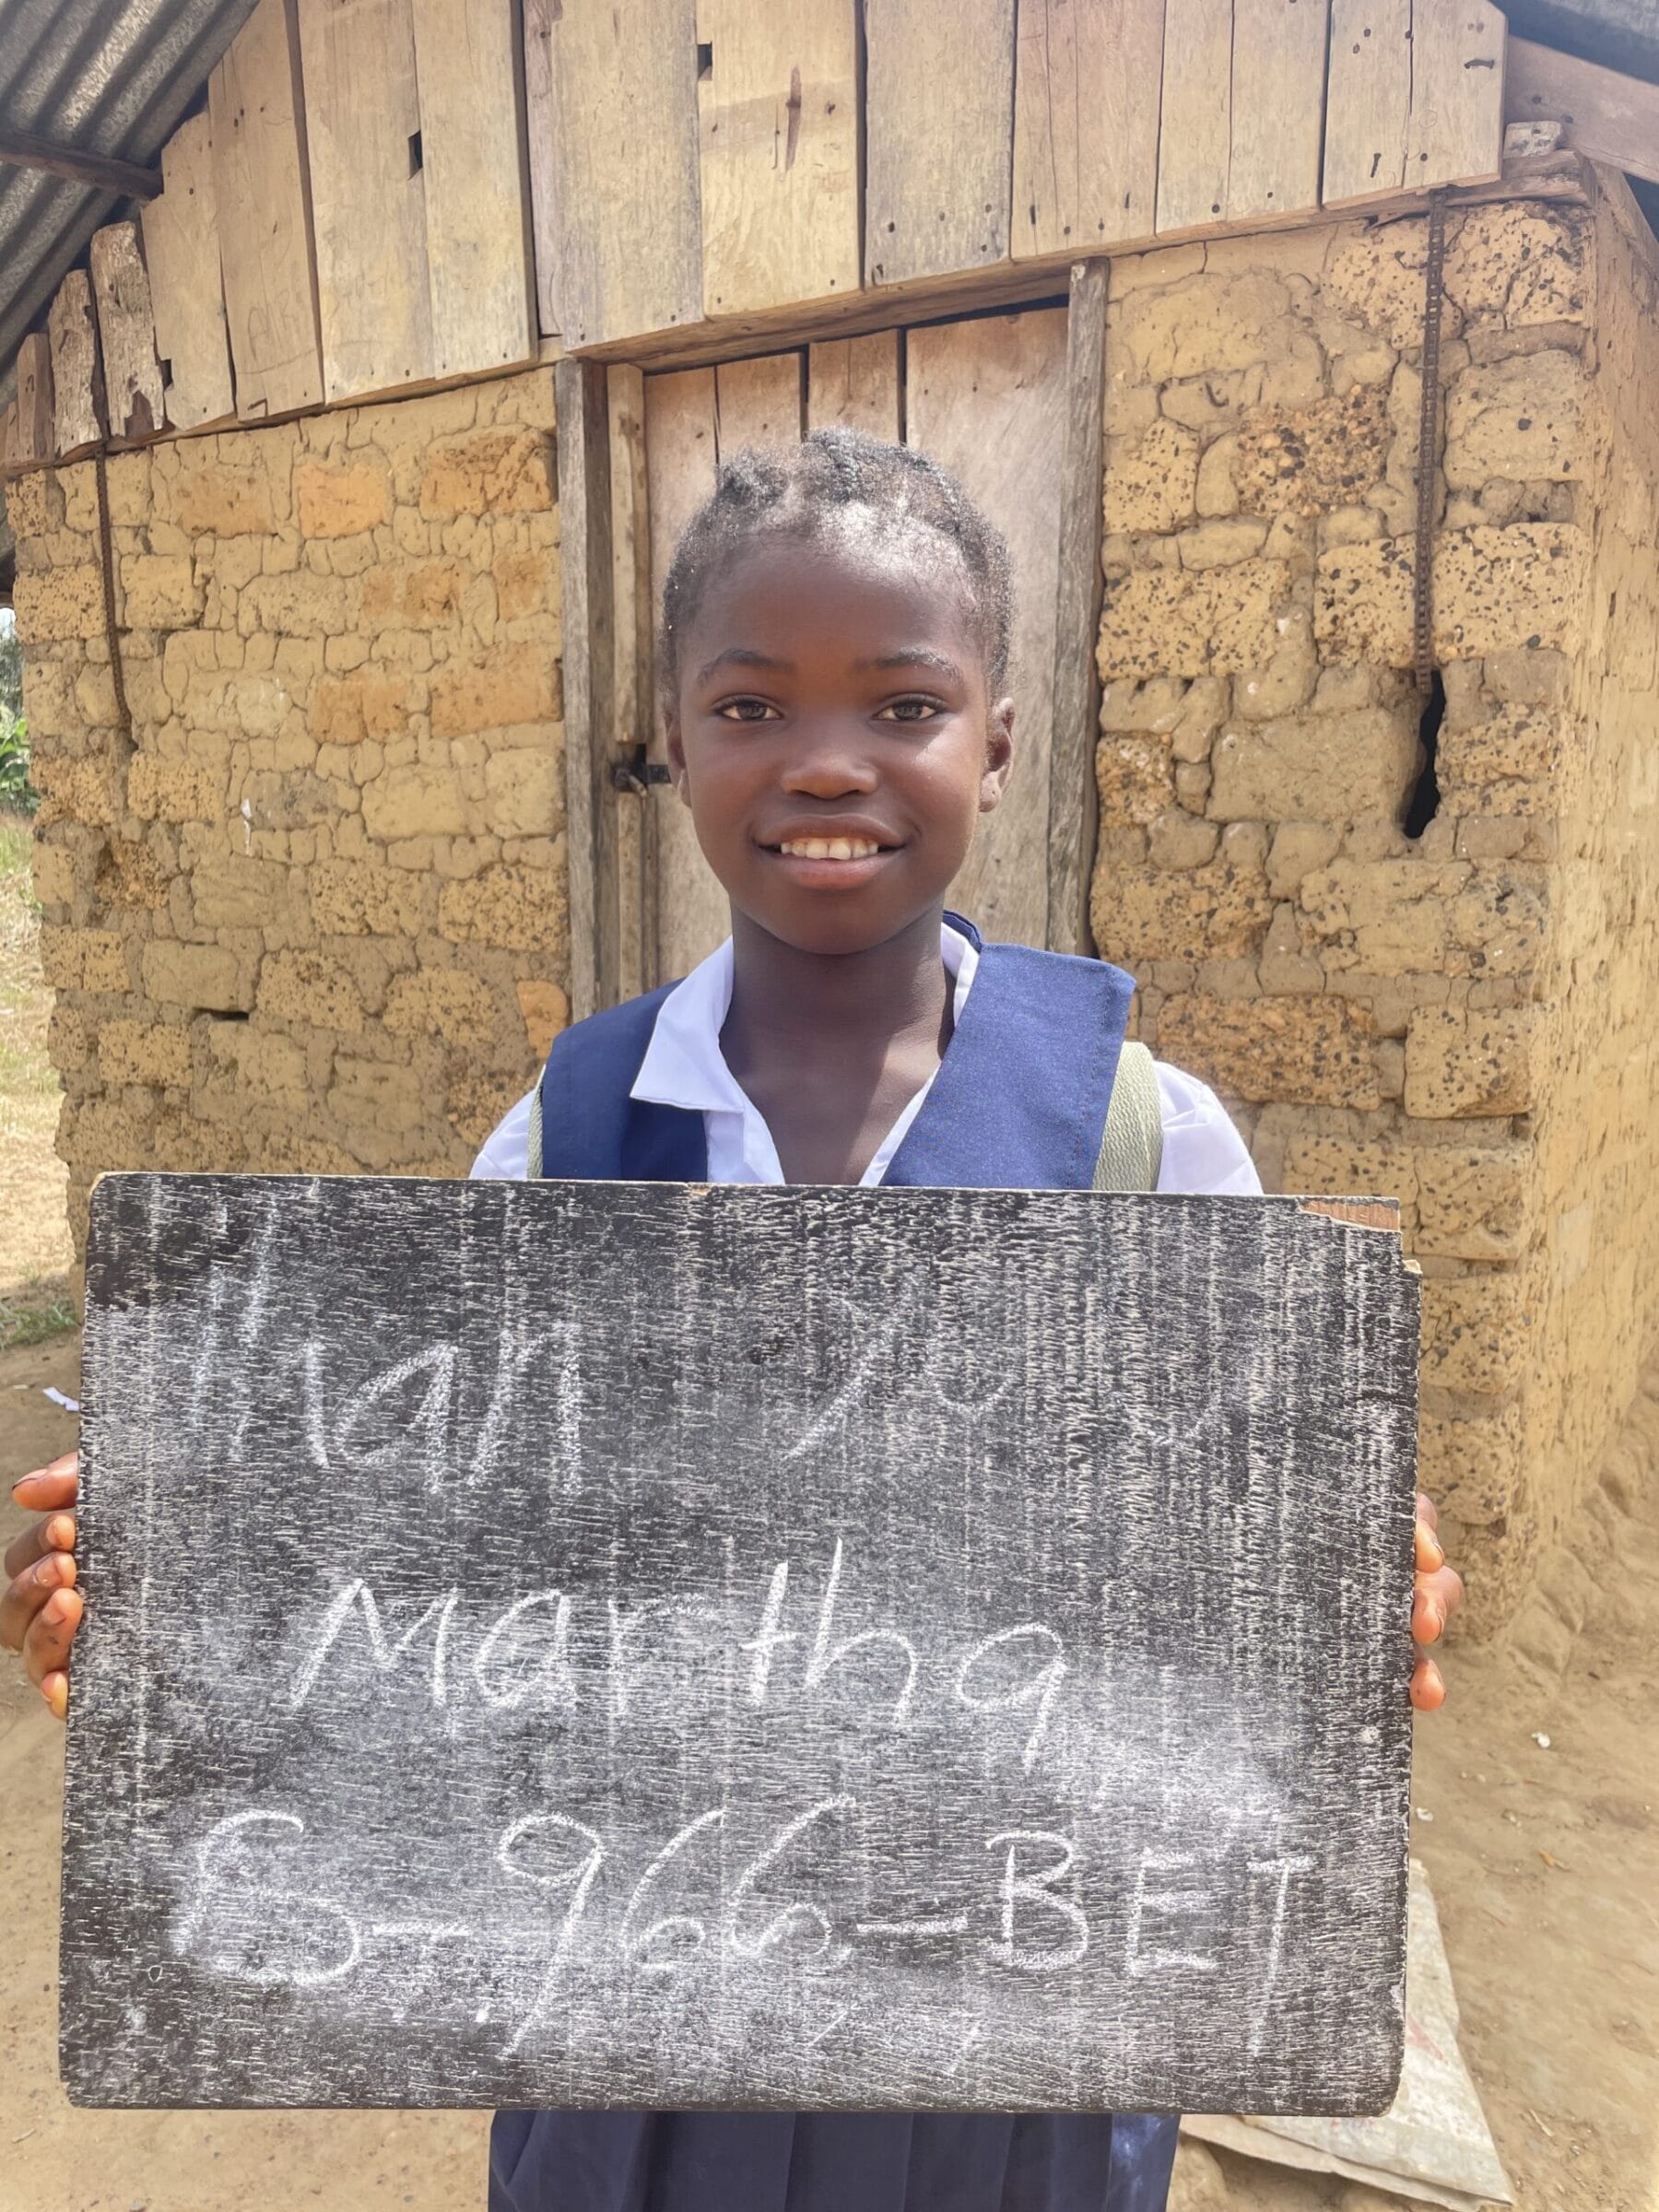 than you
Martha
S-966-BET